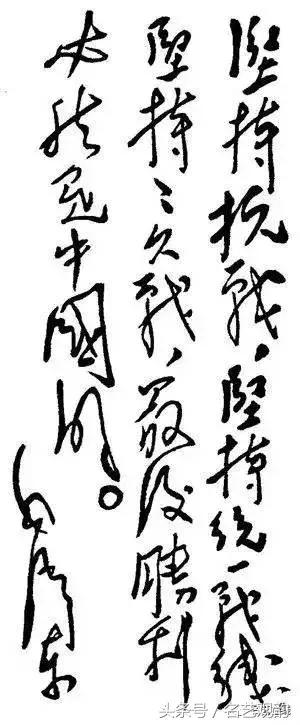 堅持抗戰、堅持統一战綫
堅持〻久戰、最後勝利
必然是中國的。
毛澤東
头条号 / 名艺